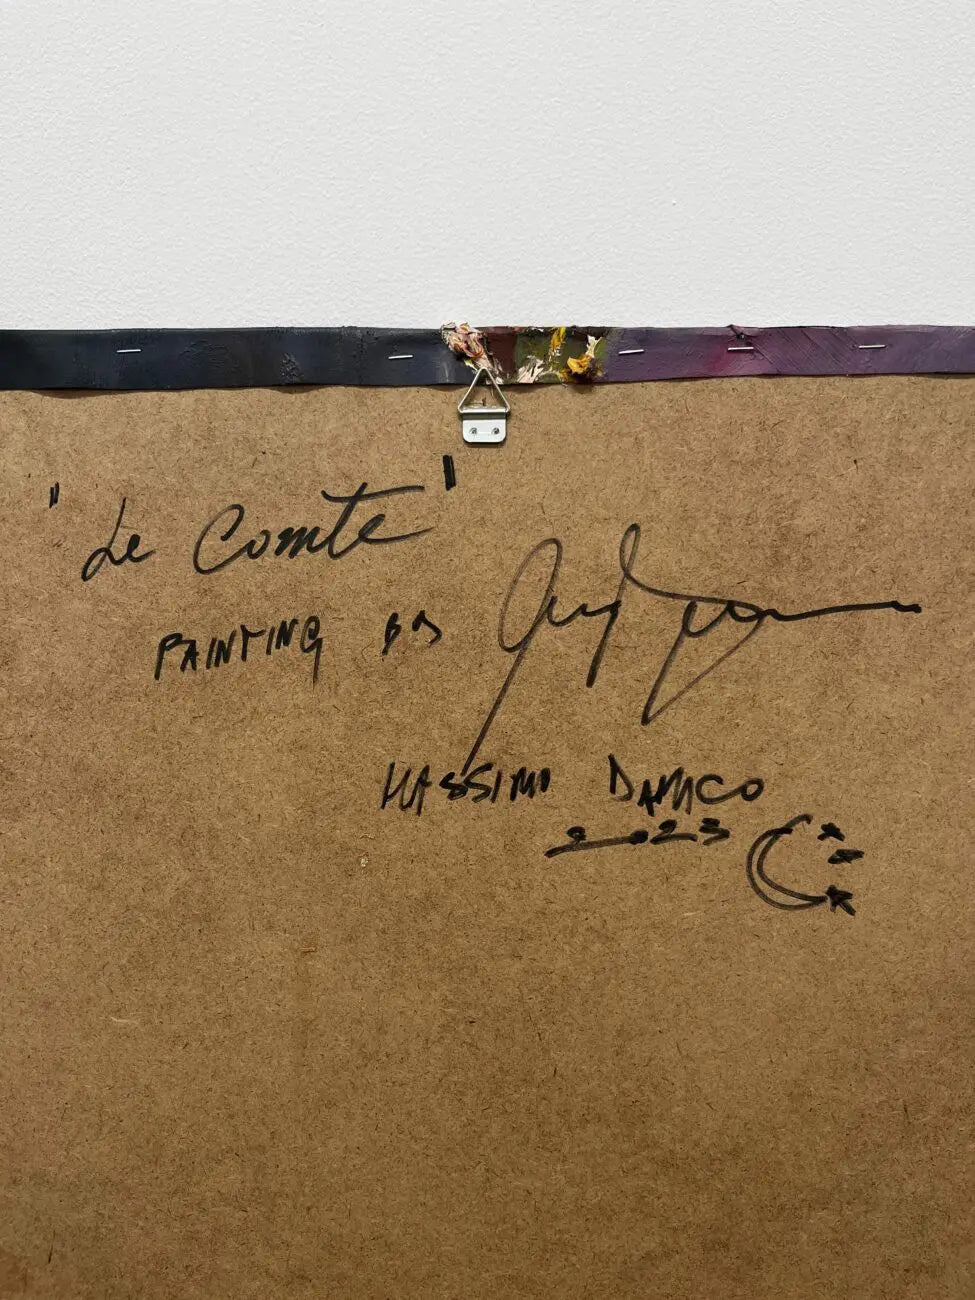 "Le Comte"
PAINTING By
MASSIMO DAMICO
2023